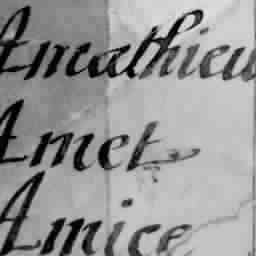 Amathieu
Amet
Amice